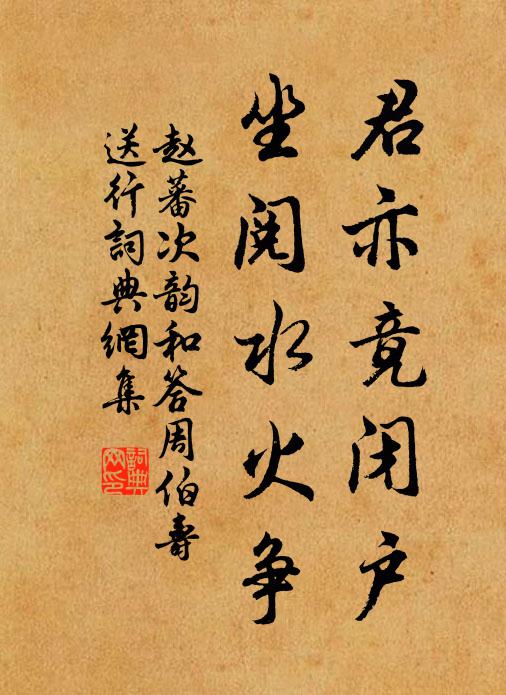 君亦竟闭户
坐阅水火争
赵蕃次韵和答周伯寿
送行词典網集
詞典網印